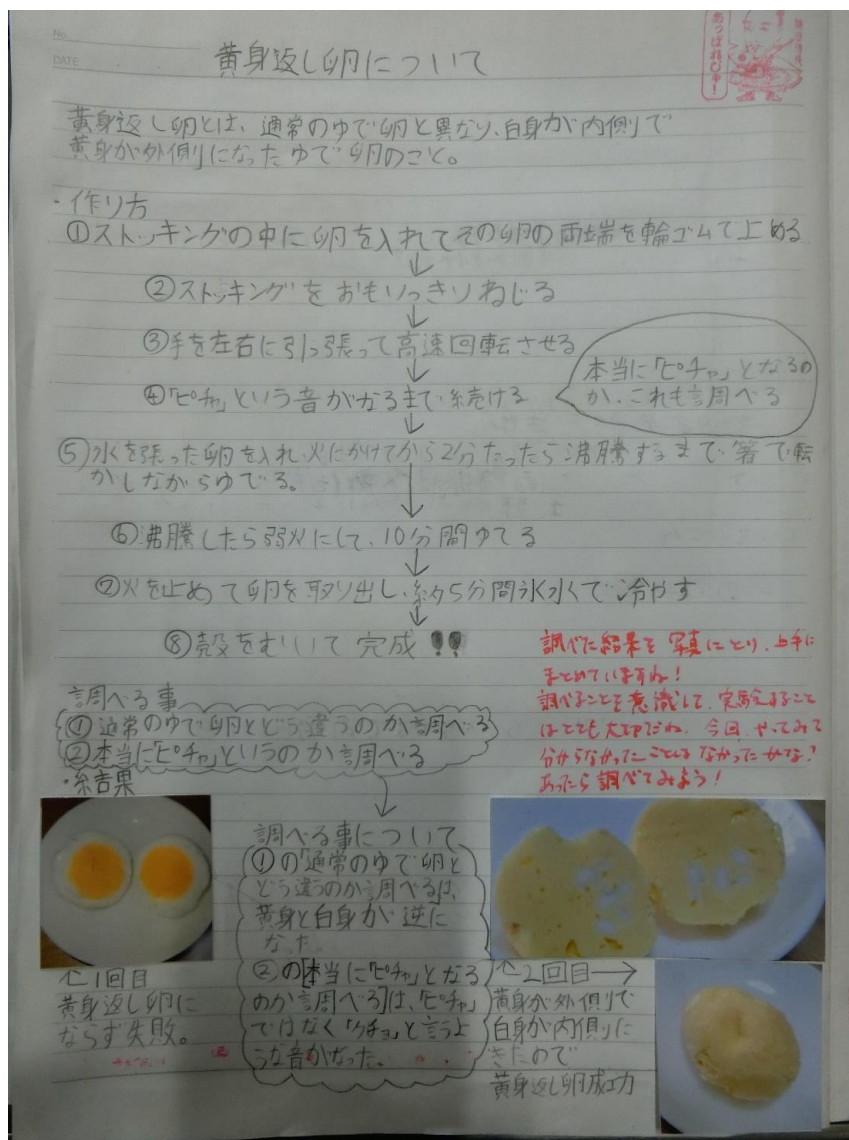 No.
DATE
黄身返し卵について
あっぱれじゃ!
黄身返し卵とは、通常のゆで卵と異なり、白身が内側で
黄身が外側になったゆで卵のこと。
・作り方
①ストッキングの中に卵を入れてその卵の両端を輪ゴムで止める
↓
②ストッキングをおもいっきりねじる
↓
③手を左右に引っ張って高速回転させる
↓
④「ピチャ」という音がなるまで続ける
本当に「ピチャ」となるの
か、これも調べる
↓
⑤水を張った卵を入れ、火にかけてから2分たったら沸騰するまで箸で転
がしながらゆでる。
↓
⑥沸騰したら弱火にして、10分間ゆでる
↓
⑦火を止めて卵を取り出し、約5分間氷水で冷やす
↓
⑧殻をむいて完成!!
調べた結果を写真にとり、上手に
まとめていますね!
調べることを意識して、実験すること
はとても大切だね。今回、やってみて
分からなかったことはなかったかな?
あったら調べてみよう!
調べる事
①通常のゆで卵とどう違うのか調べる
②本当に「ピチャ」というのか調べる
・結果
↓
調べる事について
①の「通常のゆで卵と
どう違うのか調べる」は、
黄身と白身が逆に
なった
②の[本当に「ピチャ」となる
のか調べる]は、「ピチャ」
ではなく「クチョ」と言うよ
うな音がなった。
↑1回目
黄身返し卵に
ならず失敗。
↑2回目→
黄身が外側で
白身が内側に
きたので
黄身返し卵成功